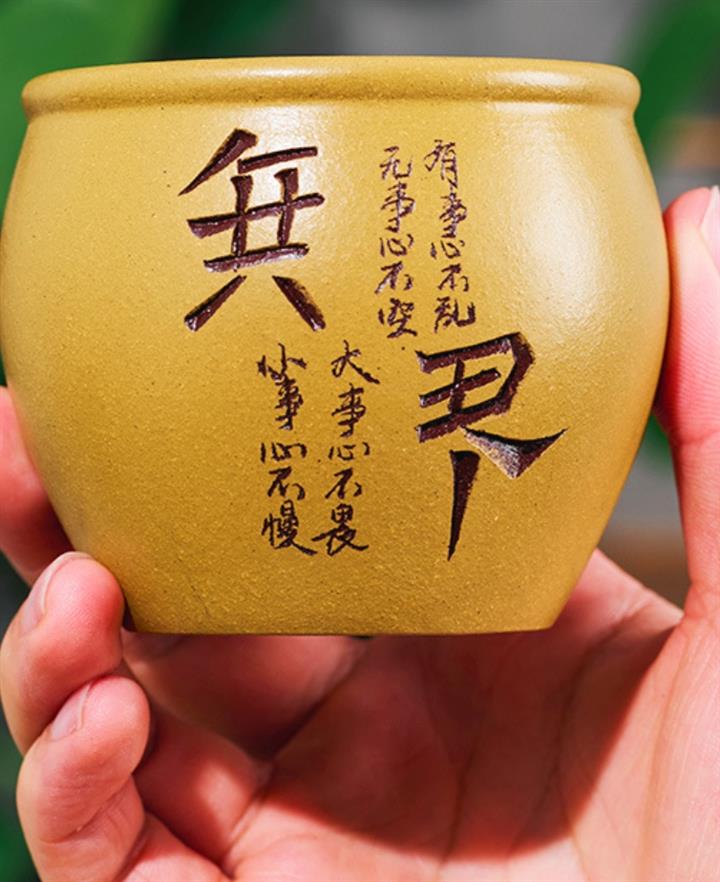 無界
有事心不乱
无事心不空
大事心不畏
小事心不慢